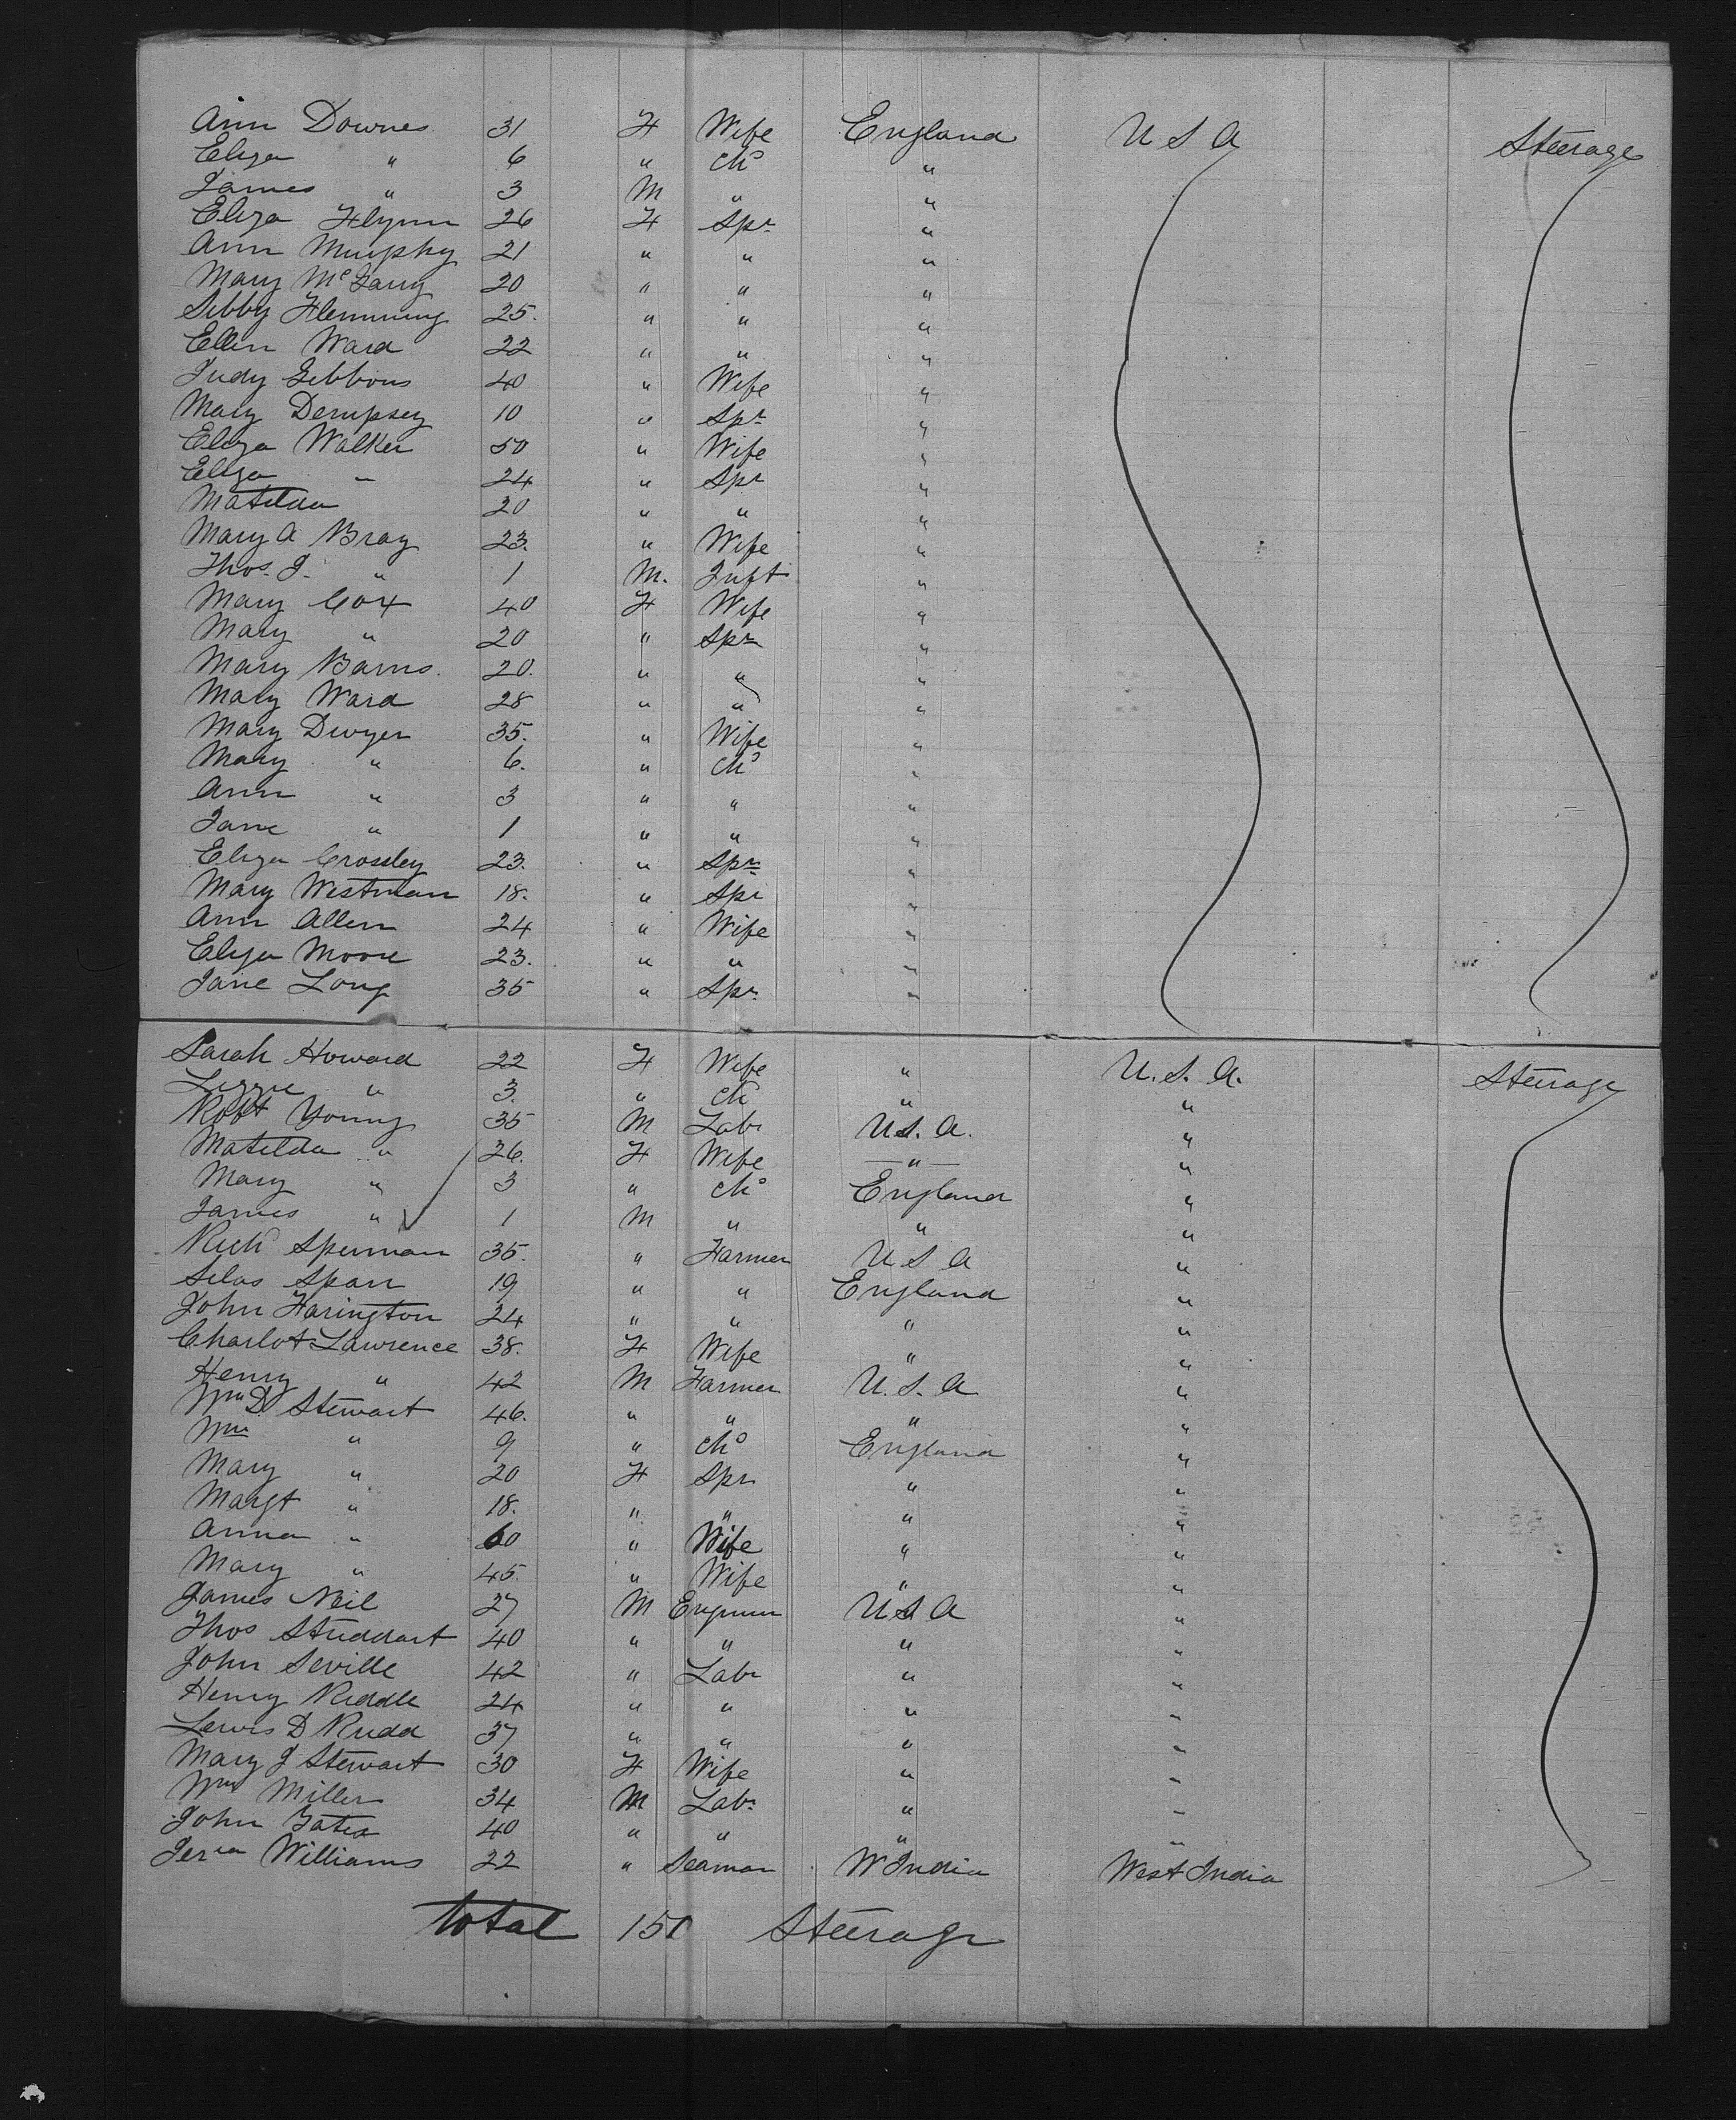 Ann Downes 31 F Wife England U S A Steerage
Eliza " 6 " Chd "
James " 3 M " "
Eliza Flynn 26 F Spr "
Ann Murphy 21 " " "
Mary McGarry 20 " " "
Sibby Flemming 25. " " "
Ellen Ward 22 " " "
Judy Gibbons 40 " Wife "
Mary Dempsey 10 " Spr "
Eliza Walker 50 " Wife "
Eliza " 24 " Spr "
Matilda 20 " " "
Mary A Bray 23. " Wife "
Thos. J. " 1 M. Inft "
Mary Cox 40 F Wife "
Mary " 20 " Spr "
Mary Barns. 20. " " "
Mary Ward 28 " " "
Mary Dwyer 35. " Wife "
Mary " 6. " Chd "
Ann " 3 " " "
Jane " 1 " " "
Eliza Crossley 23. " Spr "
Mary Westman 18. " Spr "
Ann Allen 24 " Wife "
Eliza Moore 23. " " "
Jane Long 35 " Spr. "
Sarah Howard 22 F Wife " U. S. A. Steerage
Lizzie " 3. " Ch " "
Robt Young 35 M Labr U.S.A. "
Matilda " 26. F Wife — " — "
Mary " 3 " Chd England "
James " 1 M " " "
Richd Sperman 35. " Farmer U S A "
Silas Sparr 19 " " England "
John Harington 24 " " " "
Charlot Lawrence 38. F Wife " "
Henry " 42 M Farmer U. S. A "
Wm D. Stewart 46. " " " "
Wm " 9 " Chd England "
Mary " 20 F Spr " "
Margt " 18. " " " "
Anna " 60 " Wife " "
Mary " 45. " Wife " "
James Neil 27 M Engineer U S A "
Thos Studdart 40 " " " "
John Seville 42 " Labr " "
Henry Riddle 24 " " " "
Lewis D Rudd 37 " " " "
Mary J Stewart 30 F Wife " "
Wm Miller 34 M Labr " "
John Gates 40 " " " "
Jerıa Williams 22 " Seaman W India West India
total 151 Steerage